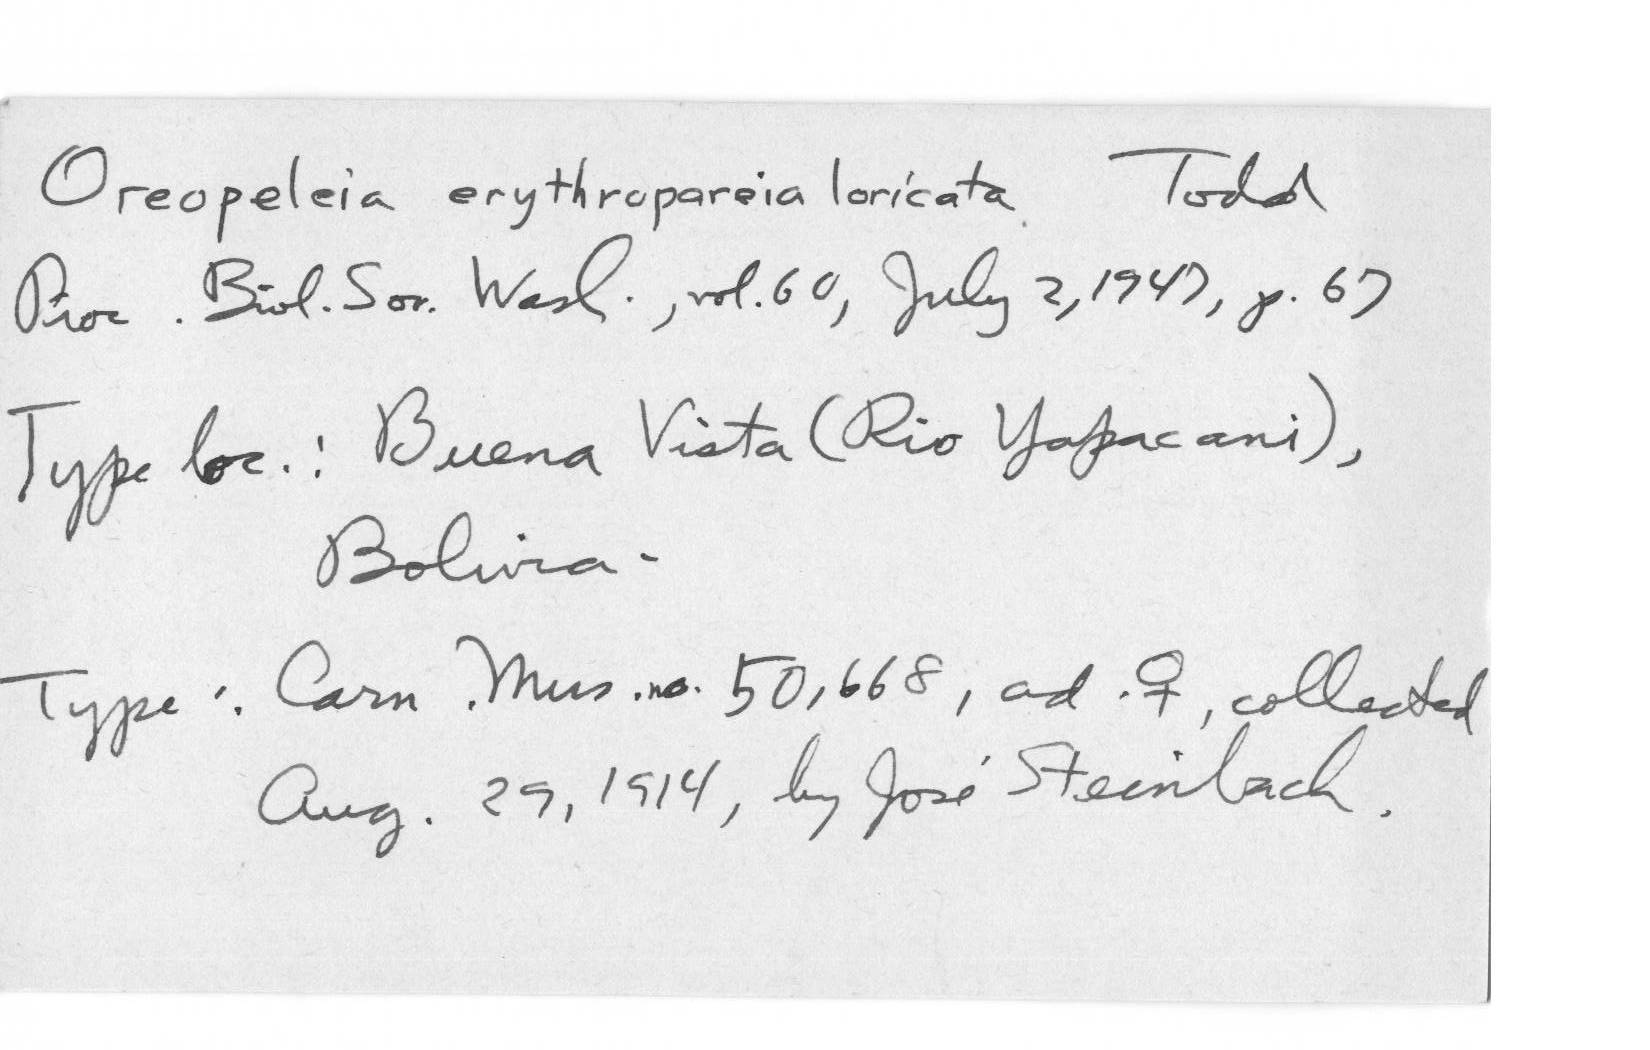 Oreopeleia erythropareia loricata Todd
Proc. Biol. Soc. Wash., vol. 60, July 2, 1947, p. 67
Type loc.: Buena Vista (Rio Yapacani),
Bolivia.
Type: Carn. Mus. no. 50,668, ad. ♀, collected
Aug. 29, 1914, by José Steinbach.